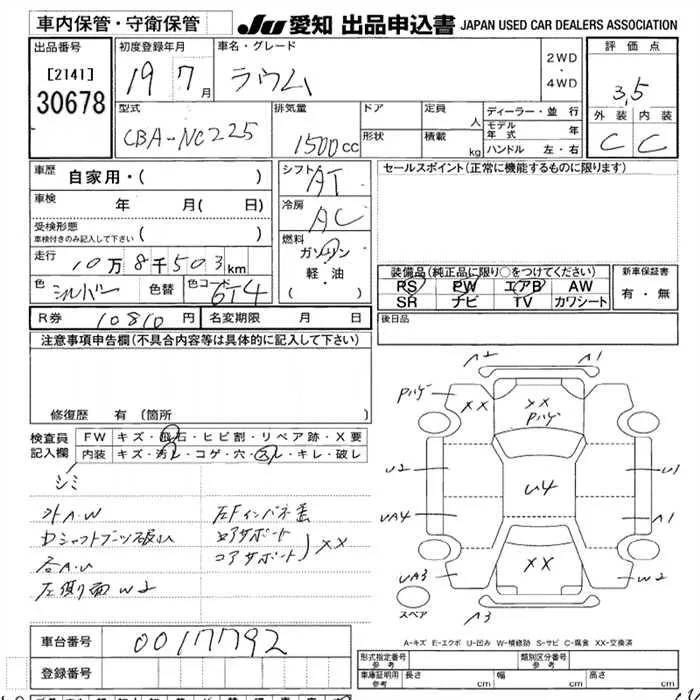 車内保管・守衛保管
JU 愛知 出品申込書 JAPAN USED CAR DEALERS ASSOCIATION
出品番号
[2141]
30678
初度登録年月
19 7月
車名・グレード
ラウム
2WD
・
4WD
評価点
3,5
外装 内装
C C
型式
CBA-NCZ25
排気量
1500cc
ドア
形状
定員 人
積載 kg
ディーラー・並行
モデル年式 年
ハンドル 左・右
車歴 自家用・( )
車検 年 月( 日)
受検形態
車検付きのみ記入して下さい ( )
走行 10万8千503km
色 シルバー 色替 色コード 6T4
シフト AT
冷房 AC
燃料
ガソリン
軽・油
( )
セールスポイント(正常に機能するものに限ります)
装備品(純正品に限り○をつけてください)
PS PW エアB AW
SR ナビ TV カワシート
新車保証書
有・無
R券 10810円 名変期限 月 日
後日品
注意事項申告欄(不具合内容等は具体的に記入して下さい)
修復歴 有(箇所
検査員記入欄
FW キズ・飛石・ヒビ割・リペア跡・X要
内装 キズ・汚レ・コゲ・穴・スレ・キレ・破レ
シミ
外A.W
Dシャフトブーツ破れ
右A.U
左側面W2
左Fインパネ差
ロアサポート
コアサポート
XX
A2 A1
Pハゲ
XX
XX
Pハゲ
U2 U1
U4
UA4 A1
XX
UA3 W2
A3
スペア
A-キズ E-エクボ U-凹み W-補修跡 S-サビ C-腐食 XX-交換済
車台番号 0017792
登録番号
形式指定番号 参考
類別区分番号 参考
車庫証明用 参考
長さ cm 幅 cm 高さ cm